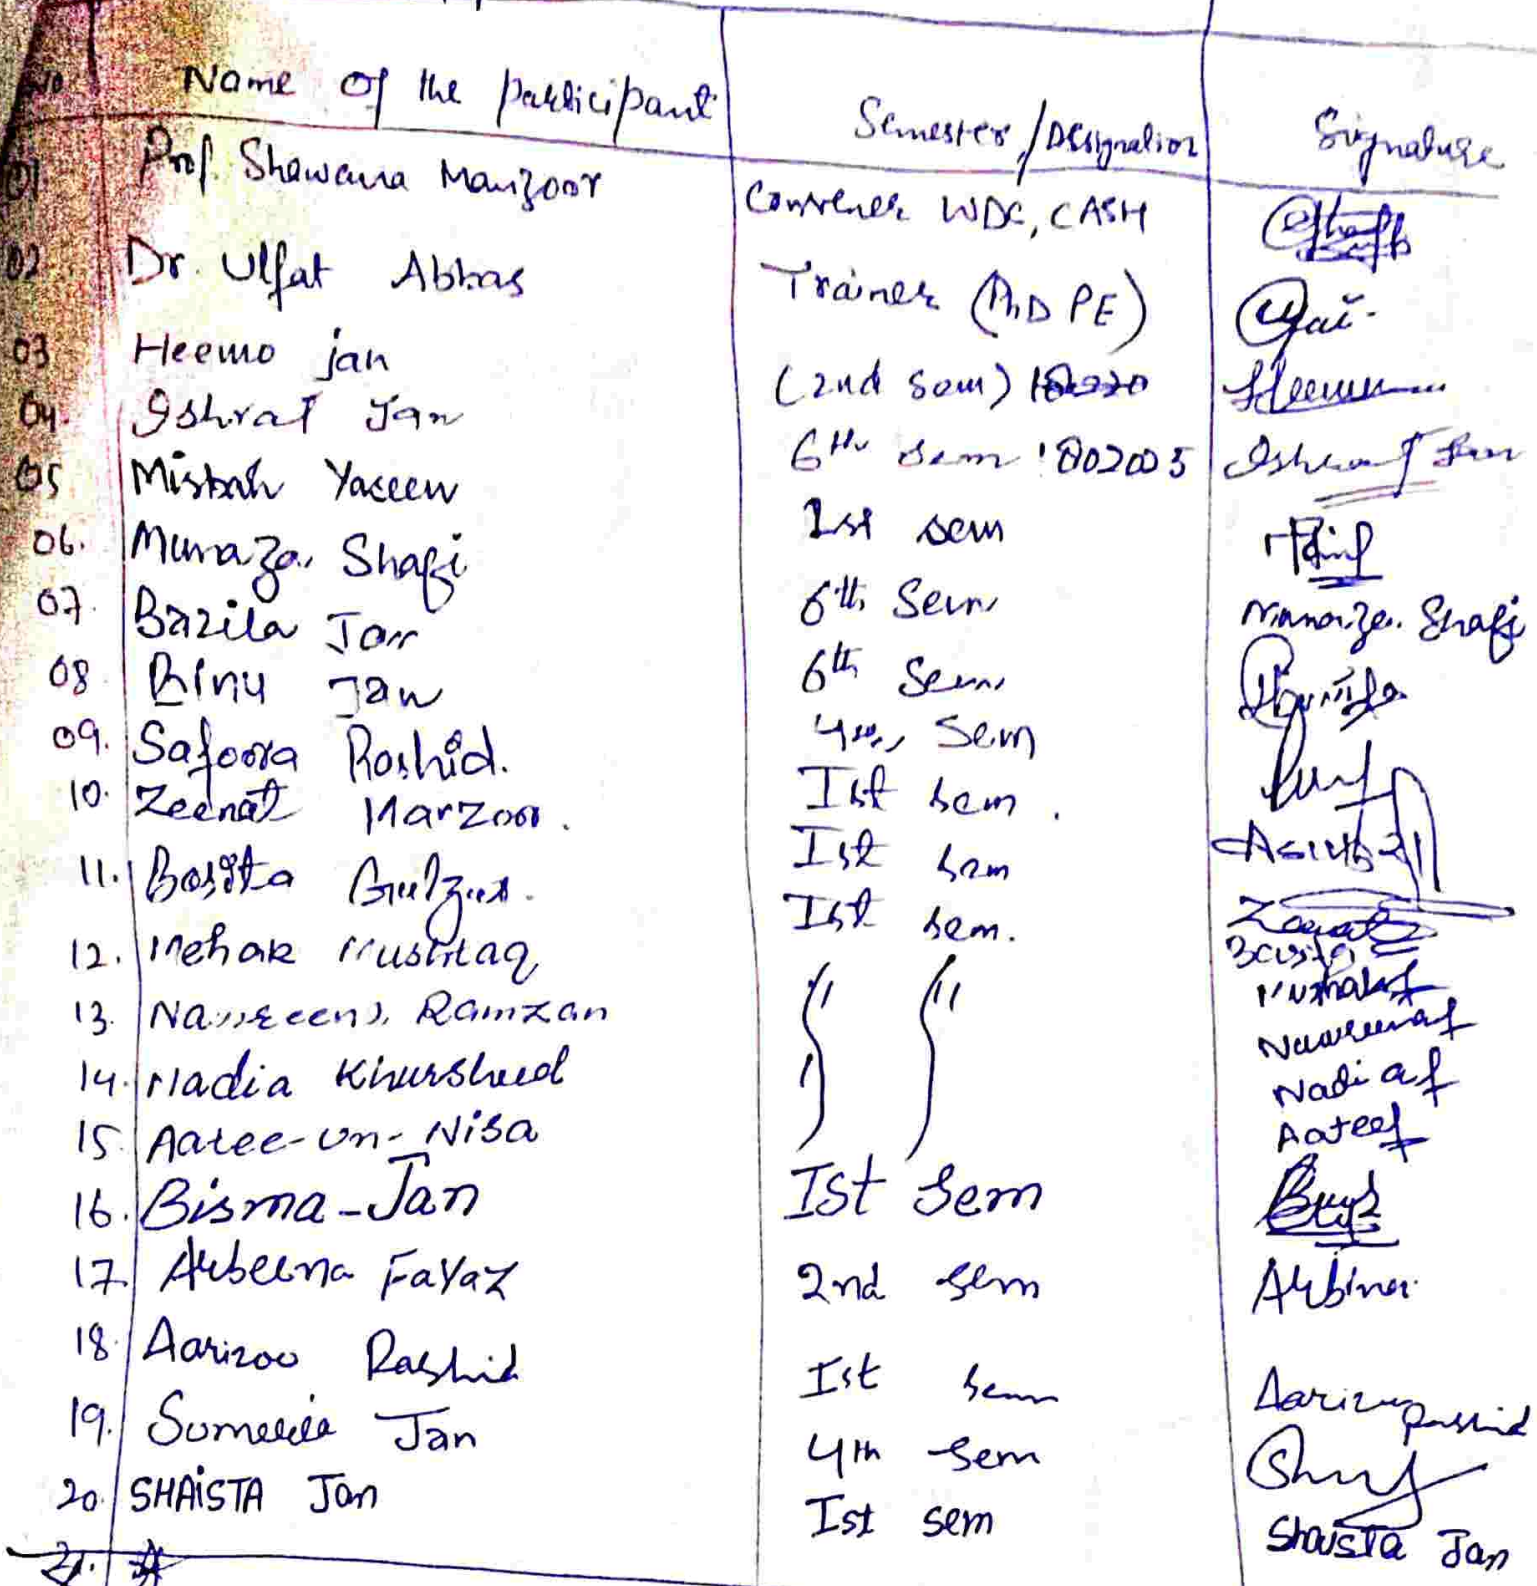 No Name of the participant Semester/Designation Signature
01. Prof. Shawana Manzoor Convener WDC, CASH
02 Dr. Ulfat Abbas Trainer (PhD PE)
03 Heemo jan (2nd Sem)
04. Ishrat Jan 6th Sem 1802005 Ishrat Jan
05 Misbah Yaseen 1st sem
06. Munaza Shafi 6th Sem Munaza Shafi
07. Bazila Jan 6th Sem
08 Binu Jan Sem
09. Safoora Rashid. Ist sem.
10. Zeenat Manzoor. Ist sem Zeenat
11. Basita Gulzar. Ist sem.
12. Mehak Mushtaq " "
13. Nasreena Ramzan
14. Nadia Khursheed Nadia
15. Aatee-un-Nisa Aatee
16. Bisma-Jan Ist Sem
17. Arbeena FaYaz 2nd sem Arbina
18. Aarizoo Rashid Ist sem Aarizoo Rashid
19. Jan 4th Sem
20. SHAiSTA Jan Ist sem ShaiSTA Jan
21.